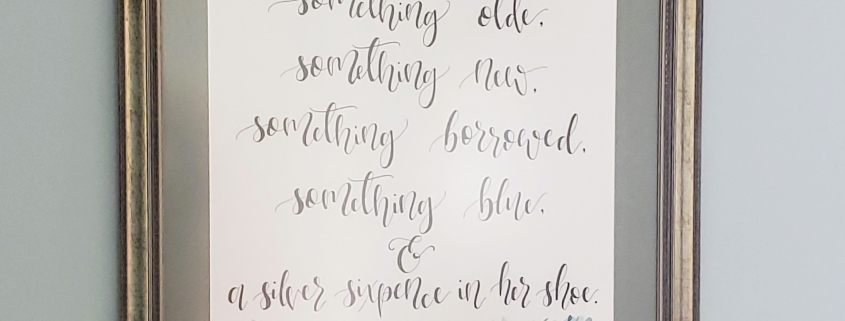 something olde.
something new.
something borrowed.
something blue.
&
a silver sixpence in her shoe.